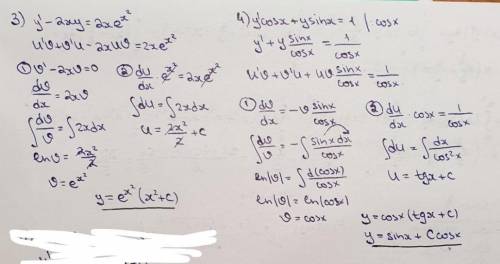 3) y' - 2xy = 2xe^{x^2}
u'v + v'u - 2xuv = 2xe^{x^2}
① v' - 2xv = 0
dv/dx = 2xv
∫ dv/v = ∫ 2xdx
ln v = 2x^2/2
v = e^{x^2}
② du/dx · e^{x^2} = 2xe^{x^2}
∫ du = ∫ 2xdx
u = 2x^2/2 + C
y = e^{x^2} (x^2 + C)
4) y'cosx + y sinx = 1 | : cosx
y' + y sinx/cosx = 1/cosx
u'v + v'u + uv sinx/cosx = 1/cosx
① dv/dx = -v sinx/cosx
∫ dv/v = -∫ sinx dx/cosx
ln|v| = ∫ d(cosx)/cosx
ln|v| = ln|cosx|
v = cosx
② du/dx · cosx = 1/cosx
∫ du = ∫ dx/cos^2x
u = tgx + C
y = cosx (tgx + C)
y = sinx + C cosx